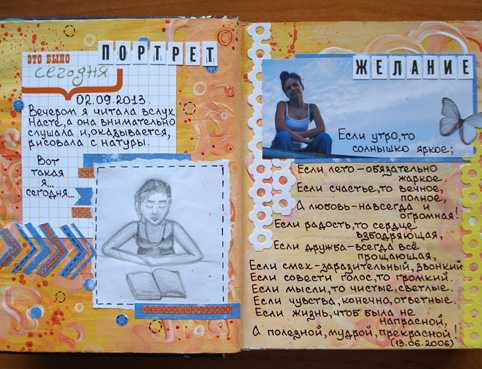 ПОРТРЕТ
ЭТО БЫЛО
сегодня
02.09.2013.
Вечером я читала вслух
Насте, а она внимательно
слушала и, оказывается,
рисовала с натуры.
Вот
такая
я...
сегодня...
ЖЕЛАНИЕ
Если утро, то
солнышко яркое;
Если лето – обязательно
жаркое.
Если счастье, то вечное,
полное,
А любовь – навсегда и
огромная!
Если радость, то сердце
взбодряющая,
Если дружба – всегда всё
прощающая,
Если смех – заразительный, звонкий
Если совести голос, то громкий.
Если мысли, то чистые, светлые.
Если чувства, конечно, ответные.
Если жизнь, чтоб была не
напрасной,
А полезной, мудрой, прекрасной!
(13.06.2006)